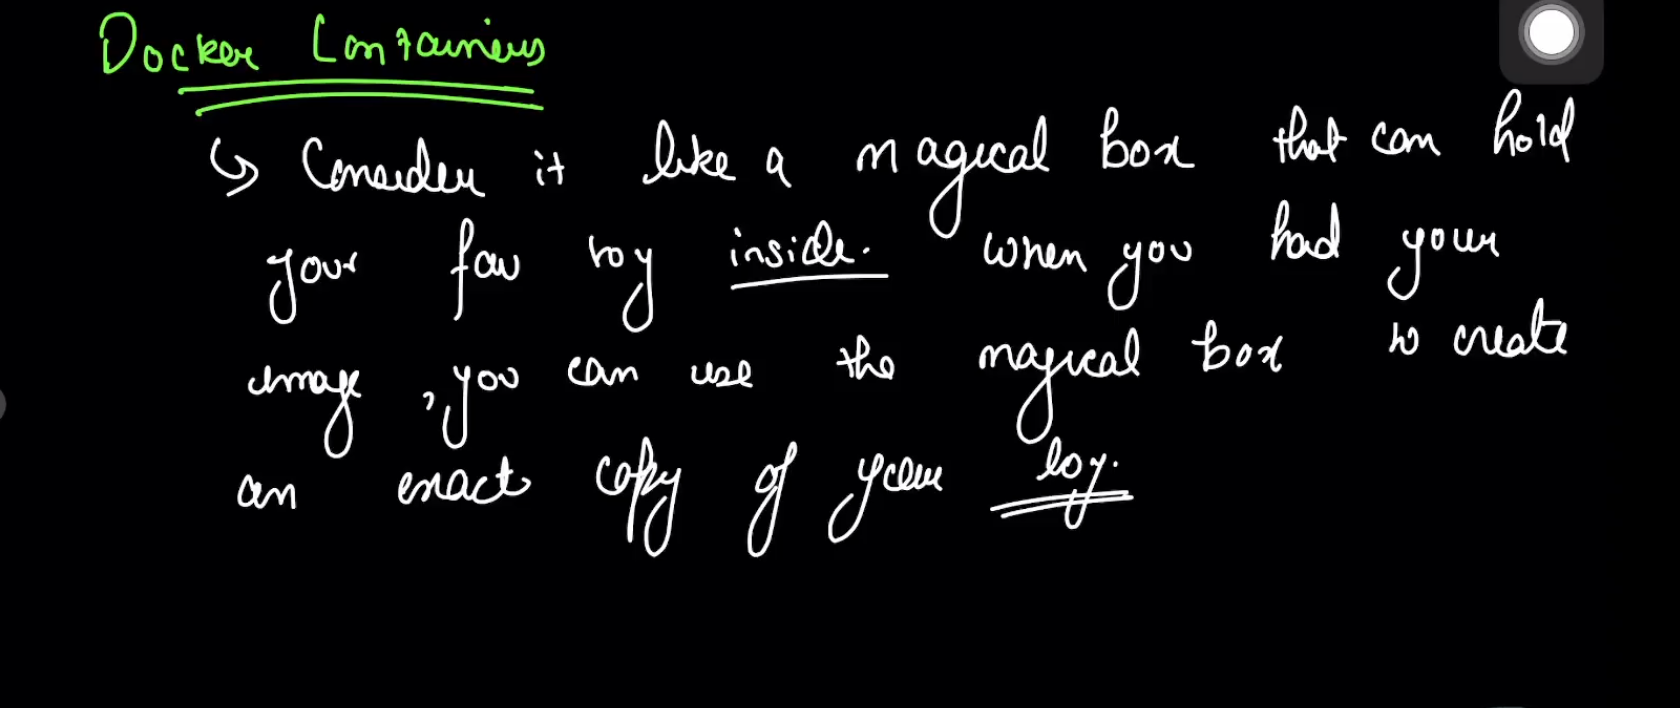 Docker Containers
↳ Consider it like a magical box that can hold
your fav toy inside. when you had your
image, you can use the magical box to create
an exact copy of your toy.